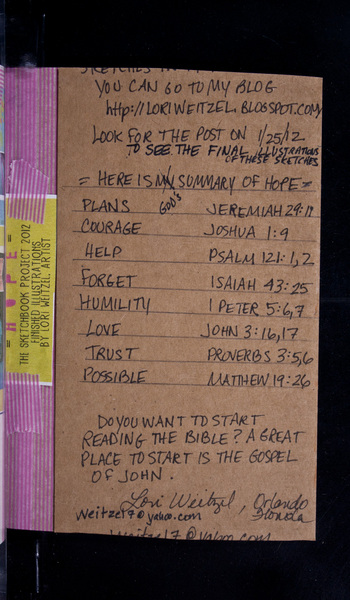 SKETCHES
YOU CAN GO TO MY BLOG
http://LORIWEITZEL.BLOGSPOT.COM/
LOOK FOR THE POST ON 1/25/12
TO SEE THE FINAL ILLUSTRATIONS
OF THESE SKETCHES
= HERE IS MY SUMMARY OF HOPE =
GOD'S
PLANS JEREMIAH 29:11
COURAGE JOSHUA 1:9
HELP PSALM 121:1,2
FORGET ISAIAH 43:25
HUMILITY 1 PETER 5:6,7
LOVE JOHN 3:16,17
TRUST PROVERBS 3:5,6
POSSIBLE MATTHEW 19:26
DO YOU WANT TO START
READING THE BIBLE? A GREAT
PLACE TO START IS THE GOSPEL
OF JOHN.
Lori Weitzel, Orlando
Florida
weitzel7@yahoo.com
weitzel7@yahoo.com
= HOPE =
THE SKETCHBOOK PROJECT 2012
FINISHED ILLUSTRATIONS
BY LORI WEITZEL, ARTIST